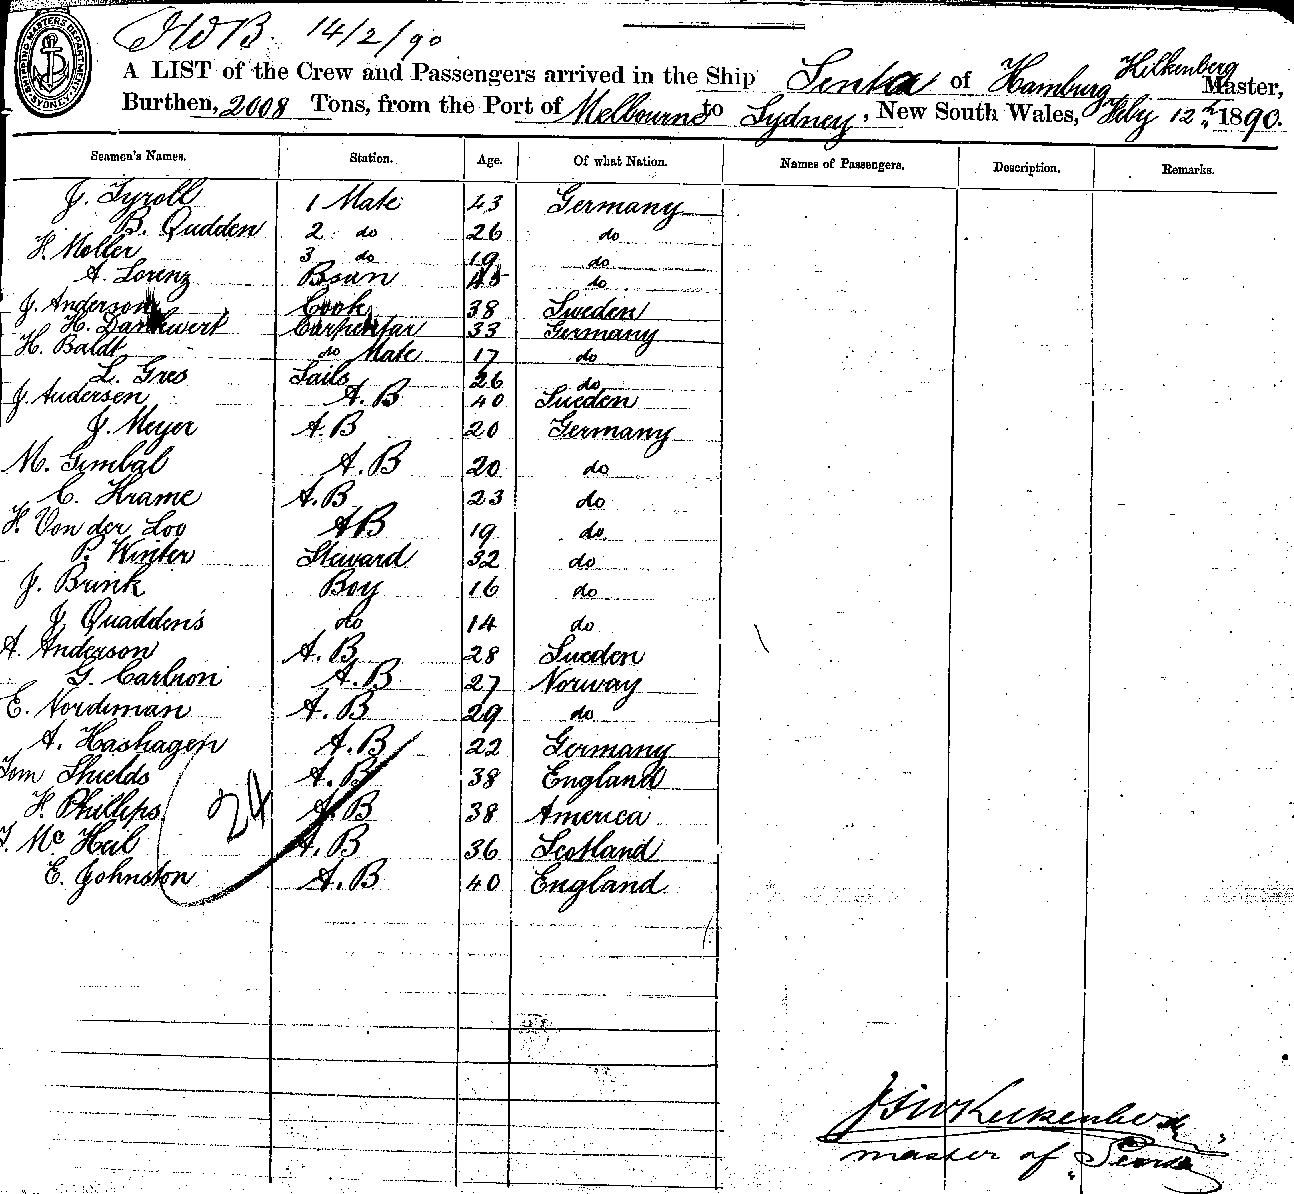 JWB. 14/2/90
SHIPPING MASTERS DEPARTMENT SYDNEY
A LIST of the Crew and Passengers arrived in the Ship Senta of Hamburg Hilkenberg Master,
Burthen, 2008 Tons, from the Port of Melbourne to Sydney, New South Wales, Feby 12th 1890.
Seamen's Names. Station. Age. Of what Nation. Names of Passengers. Description. Remarks.
J. Tyroll 1 Mate 43 Germany
B. Qudden 2 do 26 do
H. Moller 3 do 19 do
A. Lorenz Bsun do
J. Anderson Cook 38 Sweden
H. Dankwert Carpentar 33 Germany
H. Baldt do Mate 17 do
L. Gres Sails 26 do
J. Andersen A.B 40 Sueden
J. Meyer A.B 20 Germany
M. Gimbal A.B 20 do
C. Krame A.B 23 do
H. Von der Loo AB 19 do
P. Winter Steward 32 do
J. Brink Boy 16 do
J. Quadden's do 14 do
A. Anderson A.B 28 Sueden
G. Carlson A.B 27 Norway
E. Nordeman A.B 29 do
A. Hashagen A.B 22 Germany
Tom Shields A.B 38 England
H. Phillips A.B 38 America
T. Mc Heil A.B 36 Scotland
E. Johnston A.B 40 England
24
master of "Senta"